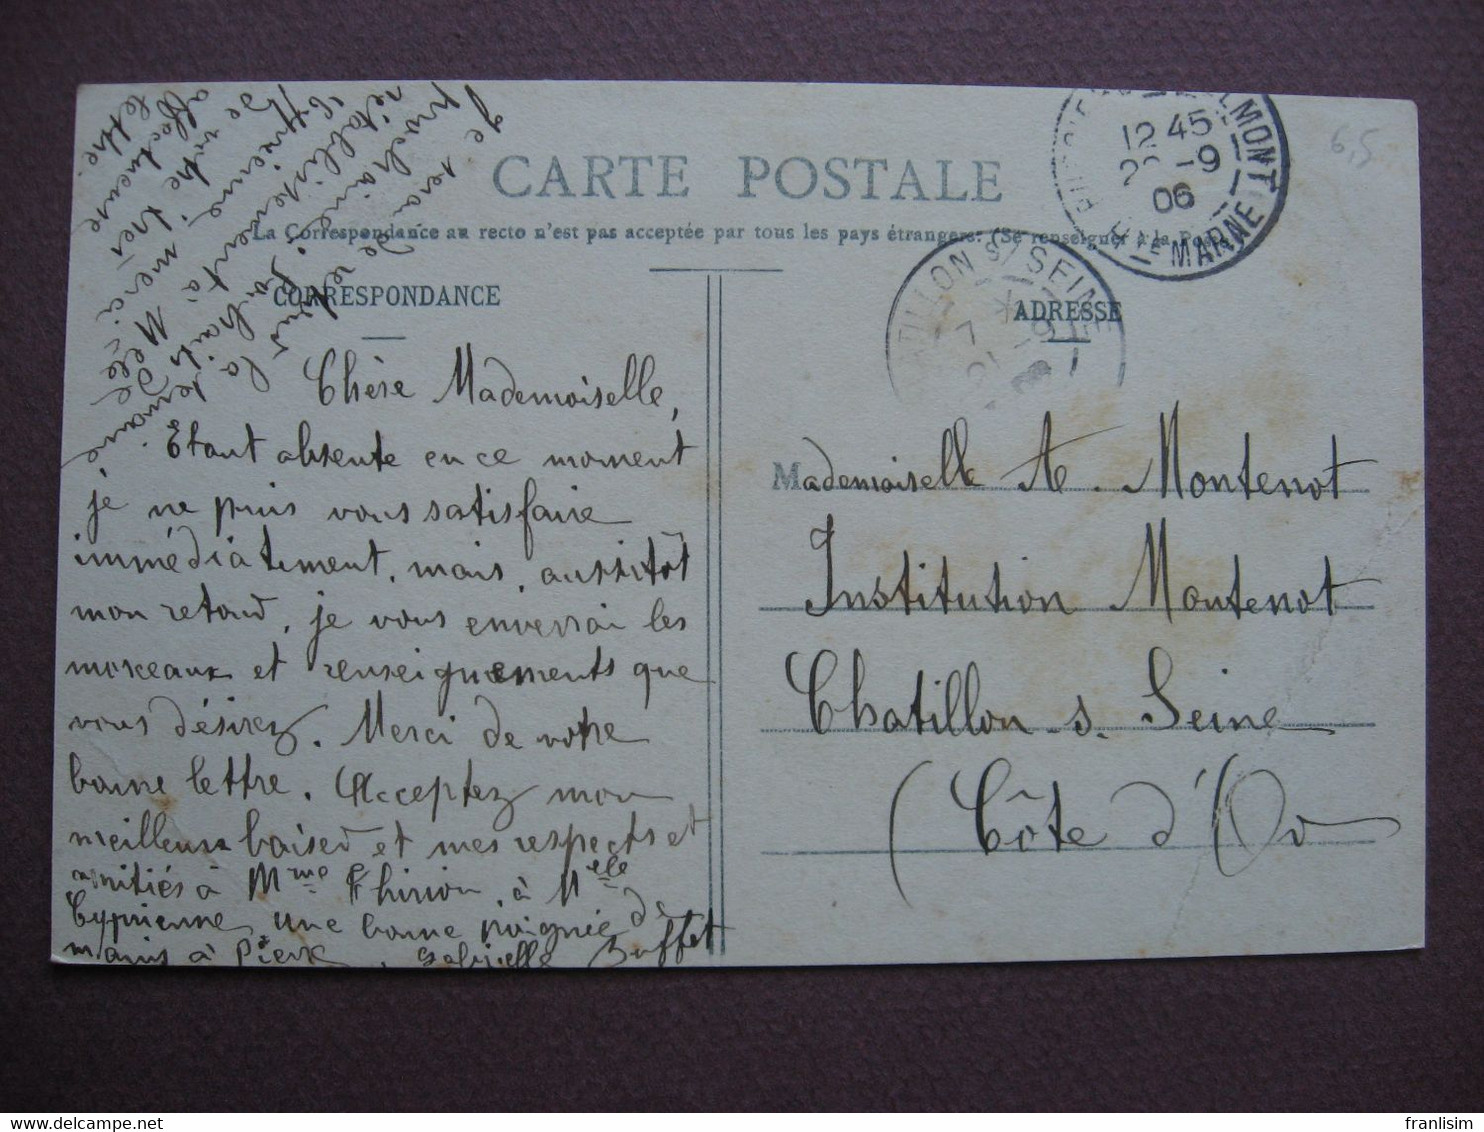 CARTE POSTALE
La Correspondance au recto n'est pas acceptée par tous les pays étrangers. (Se renseigner à la Poste)
CORRESPONDANCE
ADRESSE
Chère Mademoiselle,
Etant absente en ce moment
je ne puis vous satisfaire
immédiatement, mais, aussitôt
mon retour, je vous enverrai les
morceaux et renseignements que
vous désirez. Merci de votre
bonne lettre. Acceptez mon
meilleur baiser et mes respects et
amitiés à Mme Thirion, à Melle
Cyprienne une bonne poignée de
mains à Pierre, Gabrielle Buffet
Je serai de retour la semaine
prochaine, souhaits
rétablissement à Melle
Cyprienne, merci
de votre très
affectueuse
lettre.
Mademoiselle A. Montenot
Institution Montenot
Chatillon s. Seine
(Côte d'Or)
12 45
-9
06
MARNE
TILLON S/ SEINE
7
6,5
franlisim